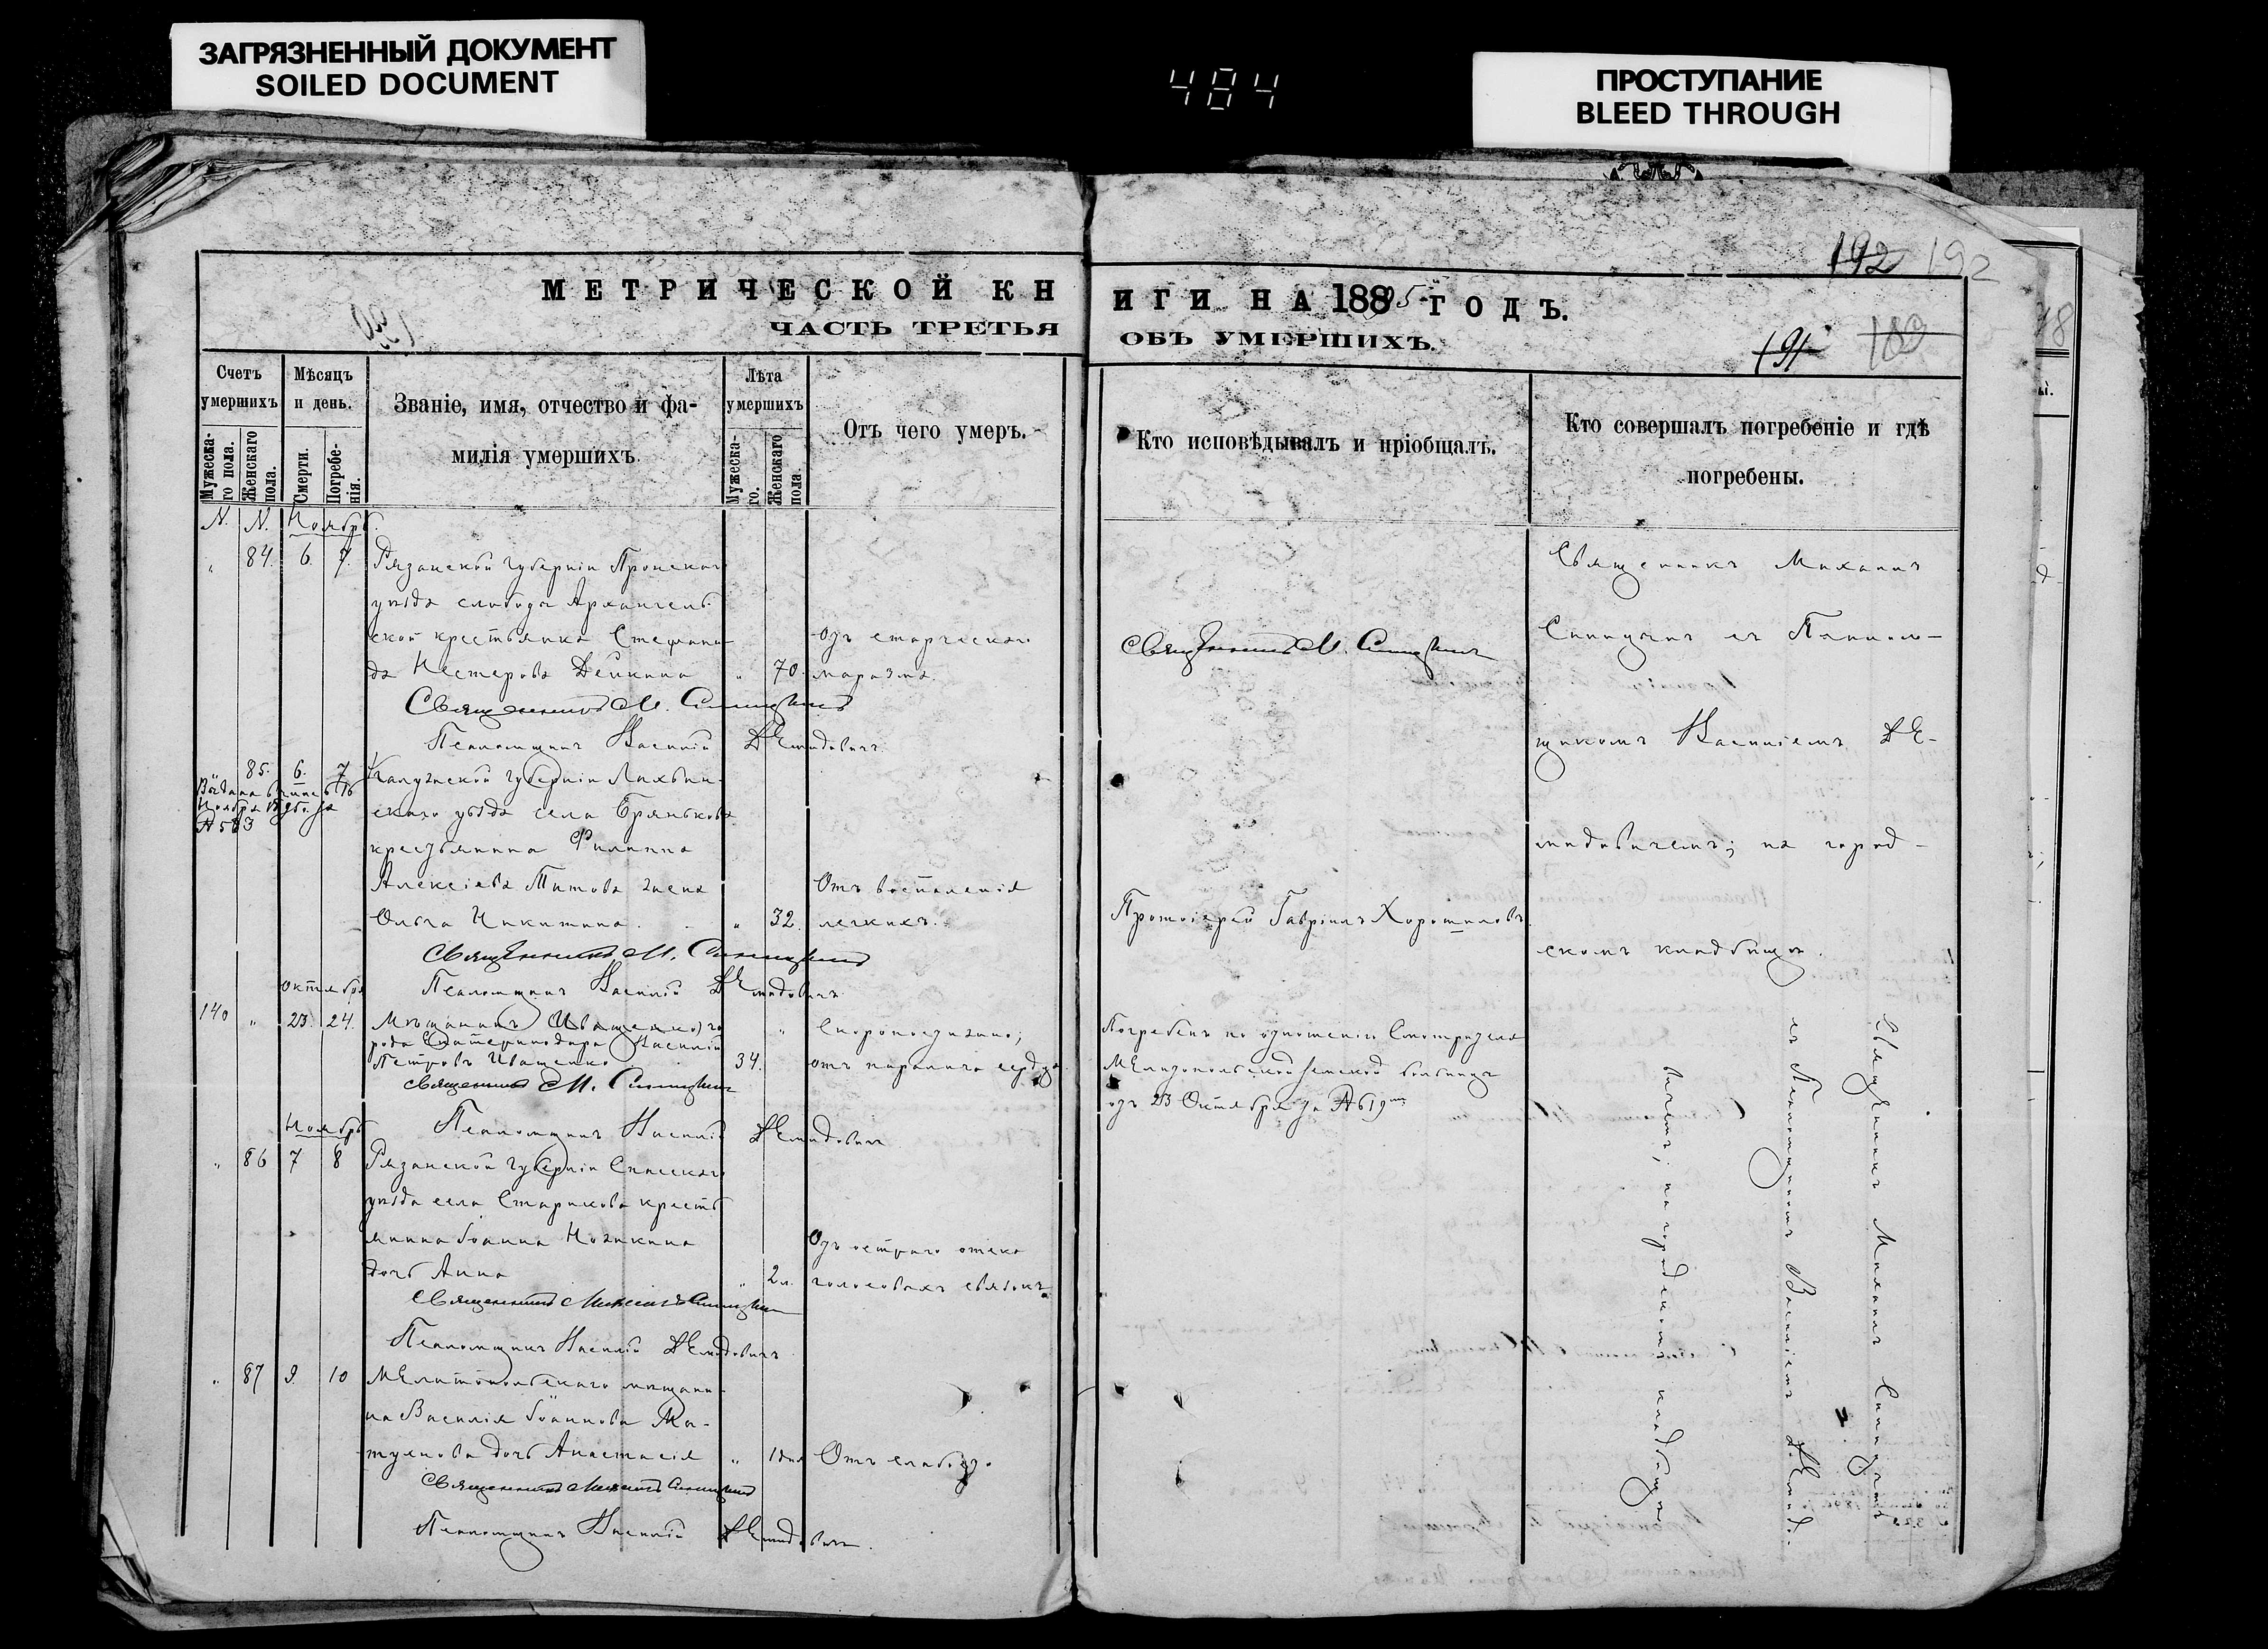 ЗАГРЯЗНЕННЫЙ ДОКУМЕНТ
SOILED DOCUMENT
484
ПРОСТУПАНИЕ
BLEED THROUGH
192 192
МЕТРИЧЕСКОЙ КН
ЧАСТЬ ТРЕТЬЯ
Счетъ умершихъ
Мѣсяцъ и день.
Званіе, имя, отчество и фа-
милія умершихъ.
Лѣта умершихъ
Отъ чего умеръ.
Мужеска-
го пола.
Женскаго
пола.
Смерти.
Погребе-
нія.
Мужеска-
го.
Женскаго
пола.
N. N. Ноябрь
" 84. 6. 7. Рязанской губерніи Пронскаго
уѣзда слободы Архангель-
ской крестьянка Стефани-
да Нестерова Дейкина " 70.
Отъ старческаго
маразма.
Священникъ М. Синицынъ
Псаломщикъ Василій Демидовичъ
85. 6. 7 Калужской губерніи Лихвин-
скаго уѣзда села Брянкова
крестьянина Филиппа
Алексіева Титова жена
Ольга Никитина. " 32.
Отъ воспаленія
легкихъ.
Выдана
Ноября
№ 583
Священникъ М. Синицынъ
Псаломщикъ Василій Демидовичъ
Октября
140 " 23. 24. Мѣщанинъ го-
рода Екатеринодара Василій
Петровъ Иващенко 34. "
Скоропостижно;
отъ паралича сердца
Священникъ М. Синицынъ
Псаломщикъ Василій Демидовичъ
Ноябрь
" 86 7 8 Рязанской губерніи Спасскаго
уѣзда села Старикова кресть-
янина Іоанна Ножкина
дочь Анна " 2 л.
Отъ остраго отека
голосовыхъ связокъ
Священникъ Михаилъ Синицынъ
Псаломщикъ Василій Демидовичъ
" 87 9. 10 Мелитопольскаго мѣщани-
на Василія Іоаннова Ма-
тухнова дочь Анастасія " 1 дня
Отъ слабости
Священникъ Михаилъ Синицынъ
Псаломщикъ Василій Демидовичъ.
ИГИ НА 1885 ГОДЪ.
ОБЪ УМЕРШИХЪ.
191 189
Кто исповѣдывалъ и пріобщалъ.
Кто совершалъ погребеніе и гдѣ
погребены.
Священникъ М. Синицынъ
Протоіерей Гавріилъ Хорошиловъ
Погребенъ по отношенію Смотрителя
Мелитопольской земской больницы
отъ 23 Октября за № 619
Священникъ Михаилъ
Синицынъ съ Псалом-
щикомъ Василіемъ Де-
мидовичемъ; на город-
скомъ кладбищѣ.
Священникъ Михаилъ Синицынъ
съ Псаломщикомъ Василіемъ Демидо-
вичемъ; на городскомъ кладбищѣ